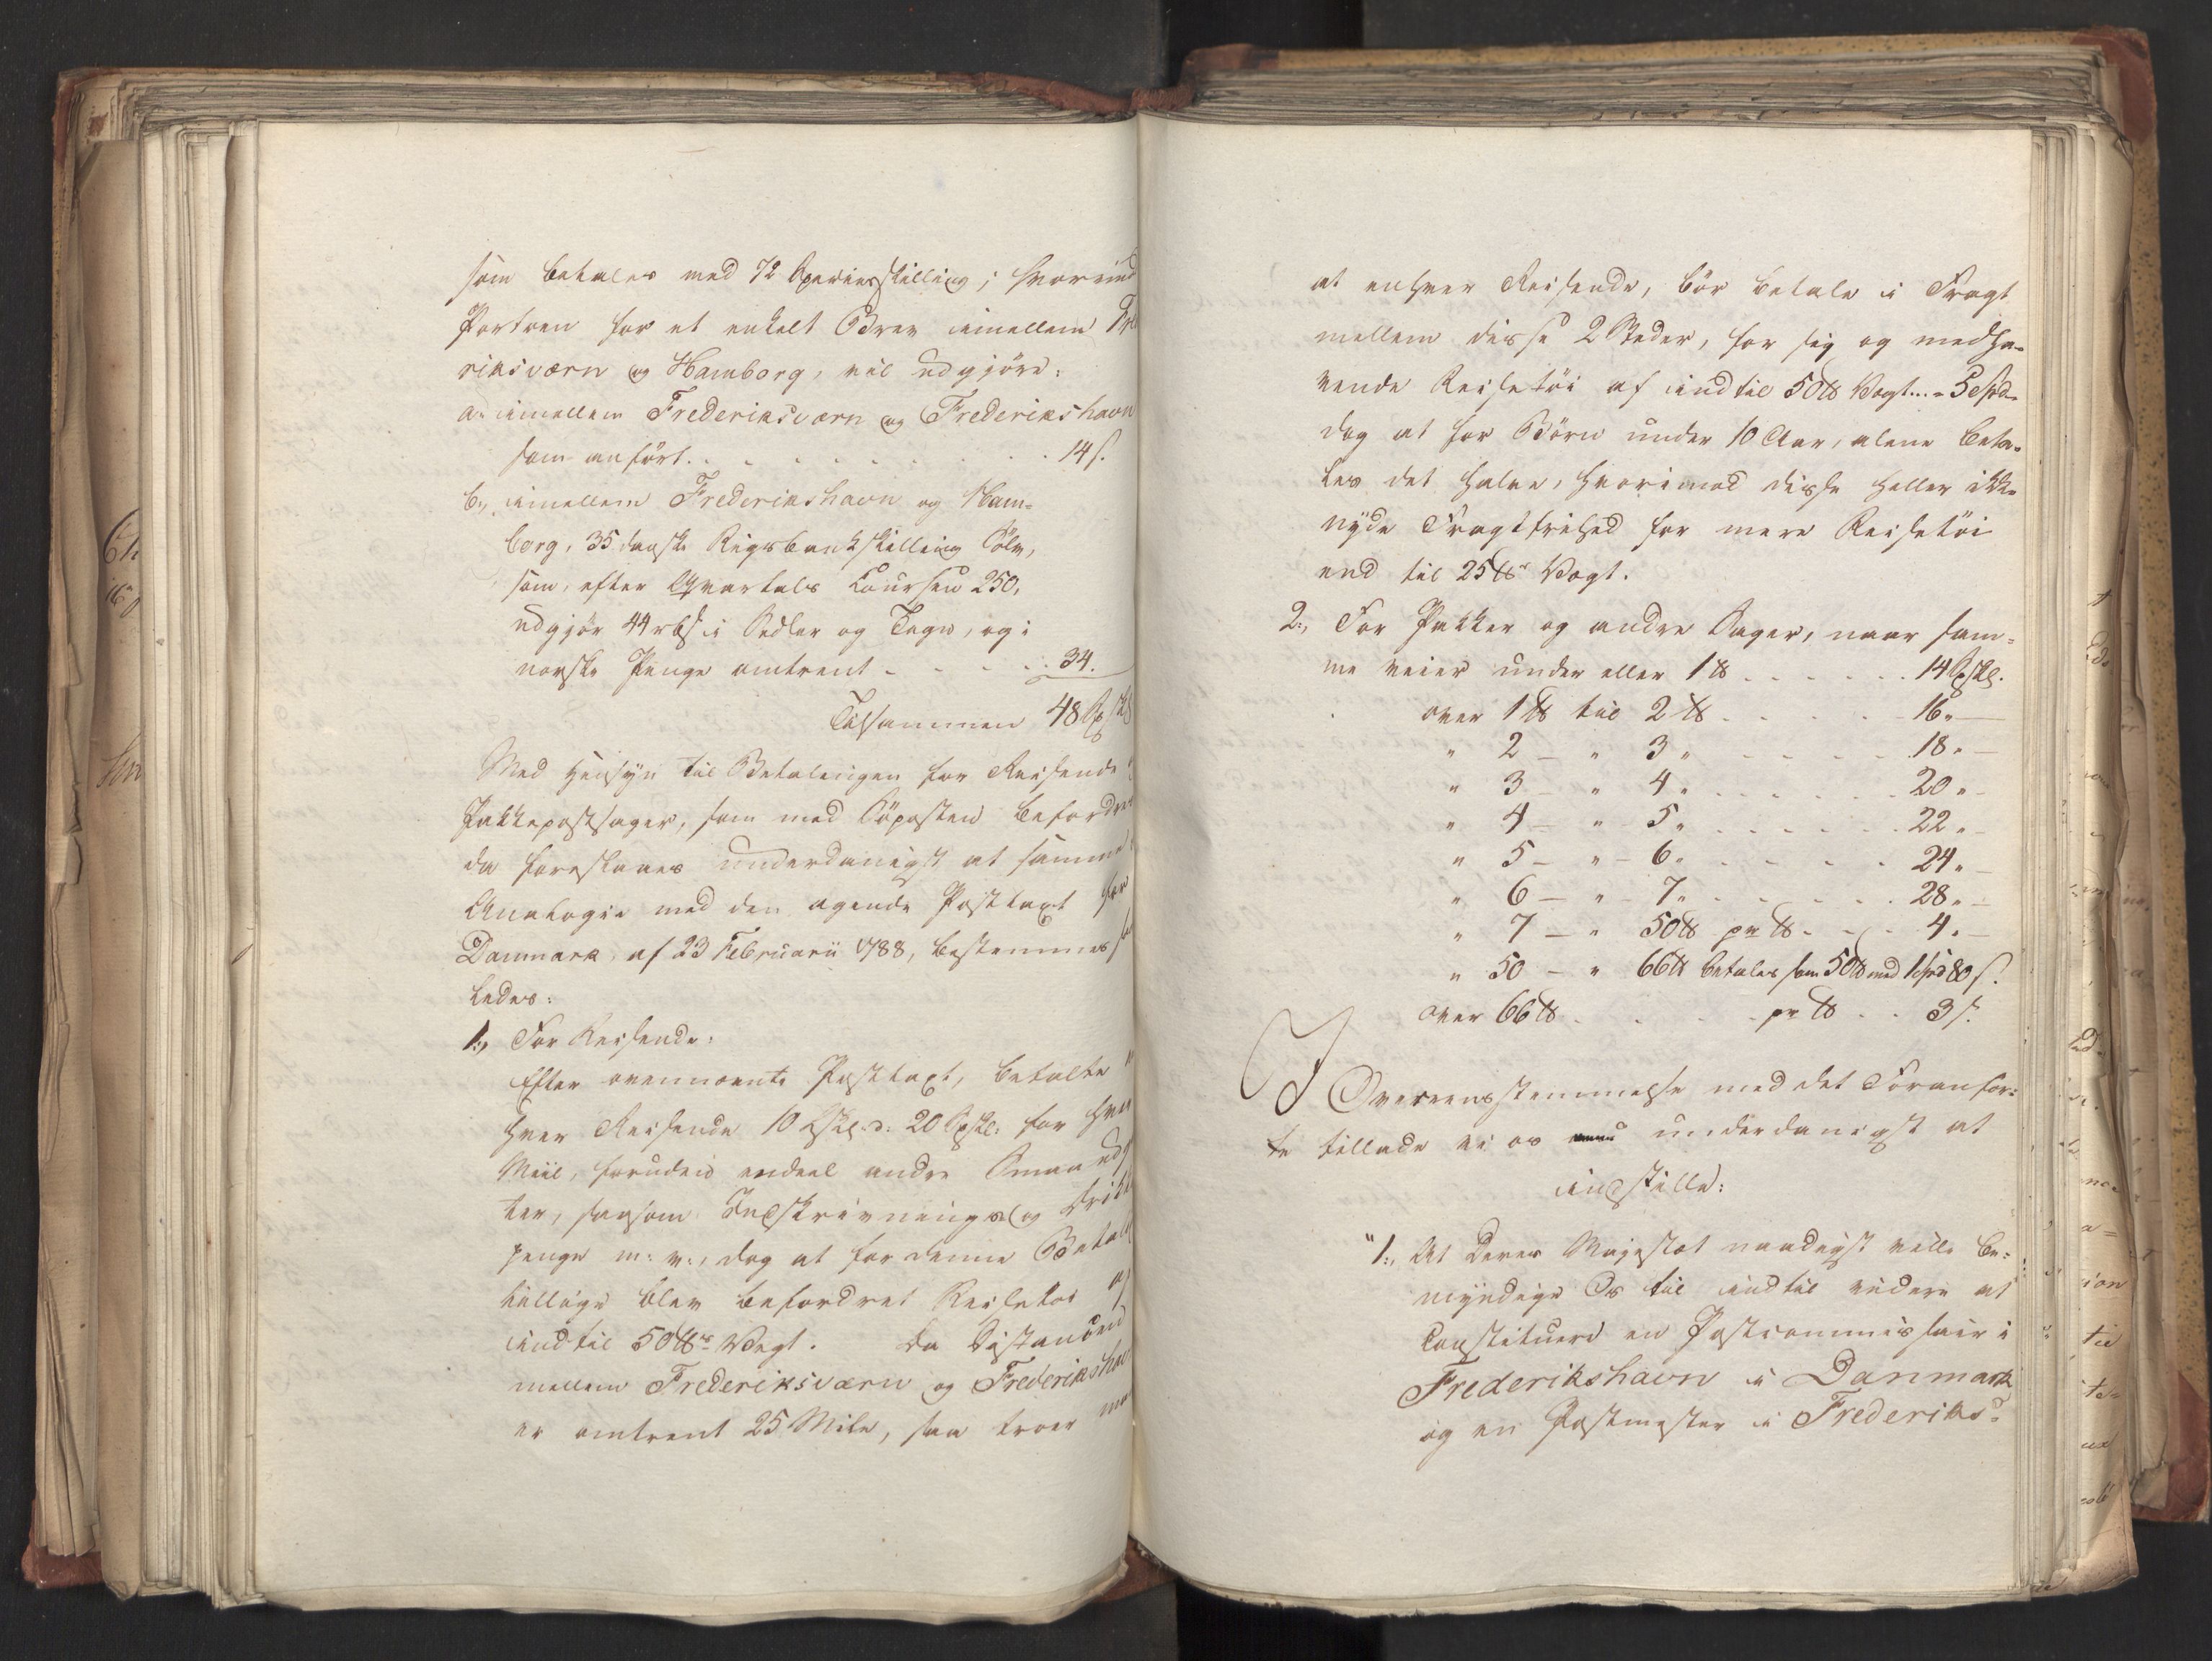 som betales med 72 Speciesskilling; hvorimod
Portoen for et enkelt Brev imellem Fre
riksværn og Hamborg, vil udgjøre:
a., imellem Frederiksværn og Frederikshavn
som anført. . . . . . . . . . . 14 s.
b., imellem Frederikshavn og Ham-
borg, 35 danske Rigsbankskilling Sölv,
som, efter Qvartals Coursen 250,
udgjör 44 rbs. i Sedler og Tegn, og i
norske Penge omtrent - - - - . 34.
Tilsammen 48 Sp sk
Med Hensyn til Betalingen for Reisende
Pakkepostsager, som med Söposten befordre
da foreslaaes underdanigst at samme
Analogie med den agende Posttaxt for
Danmark, af 23 Februarii 1788, bestemmes saa
ledes:
1., For Reisende:
Efter ovennævnte Posttaxt, betalte
hver Reisende 10 Lskl. d: 20 Spskl: for hver
Miil, foruden endeel andre Smaa udg
ter, saasom Indskrivnings og Drikke
penge m: v:, dog at for denne Betal
tillige blev befordret Reisetøi af
indtil 50 ℔s Vægt. Da Distancen
mellem Frederiksværn og Frederikshav
er omtrent 25 Mile, saa troer
at enhver Reisende, bör betale i Fragt
mellem disse 2 Steder, for sig og medha-
vende Reisetöi af indtil 50 ℔ Vægt... - 5 Spd.
dog at for Börn under 10 Aar, alene beta-
les det halve, hvorimod disse heller ikke
nyde Fragtfrihed for mere Reisetöi
end til 25 ℔s Vægt.
2., For Pakker og andre Sager, naar sam-
me veier under eller 1 ℔ . . . . . . 14 Spskl.
over 1 ℔ til 2 ℔ . . . . - 16. —
" 2 — " 3 " . . . . 18. —
" 3 — " 4 " . . . . . 20 " -
" 4 — " 5 " . . . . . 22 " -
" 5 — " - 6 " . . . . . 24 " -
" 6 — " - 7 " . . . . . 28 " -
" 7 — " 50 ℔ pr ℔ - - . 4. —
" 50 — " 66 ℔ betales som 50 ℔ med 1 Spd 80 s.
over 66 ℔ . . . . pr ℔ . . 3 s.
I Overeensstemmelse med det Foranför-
te tillade vi os underdanigst at
indstille:
"1., At Deres Majestæt naadigst ville be-
myndige Os til indtil videre at
Constituere en Postcommissair i
Frederikshavn i Danmark
og en Postmester i Frederiks-